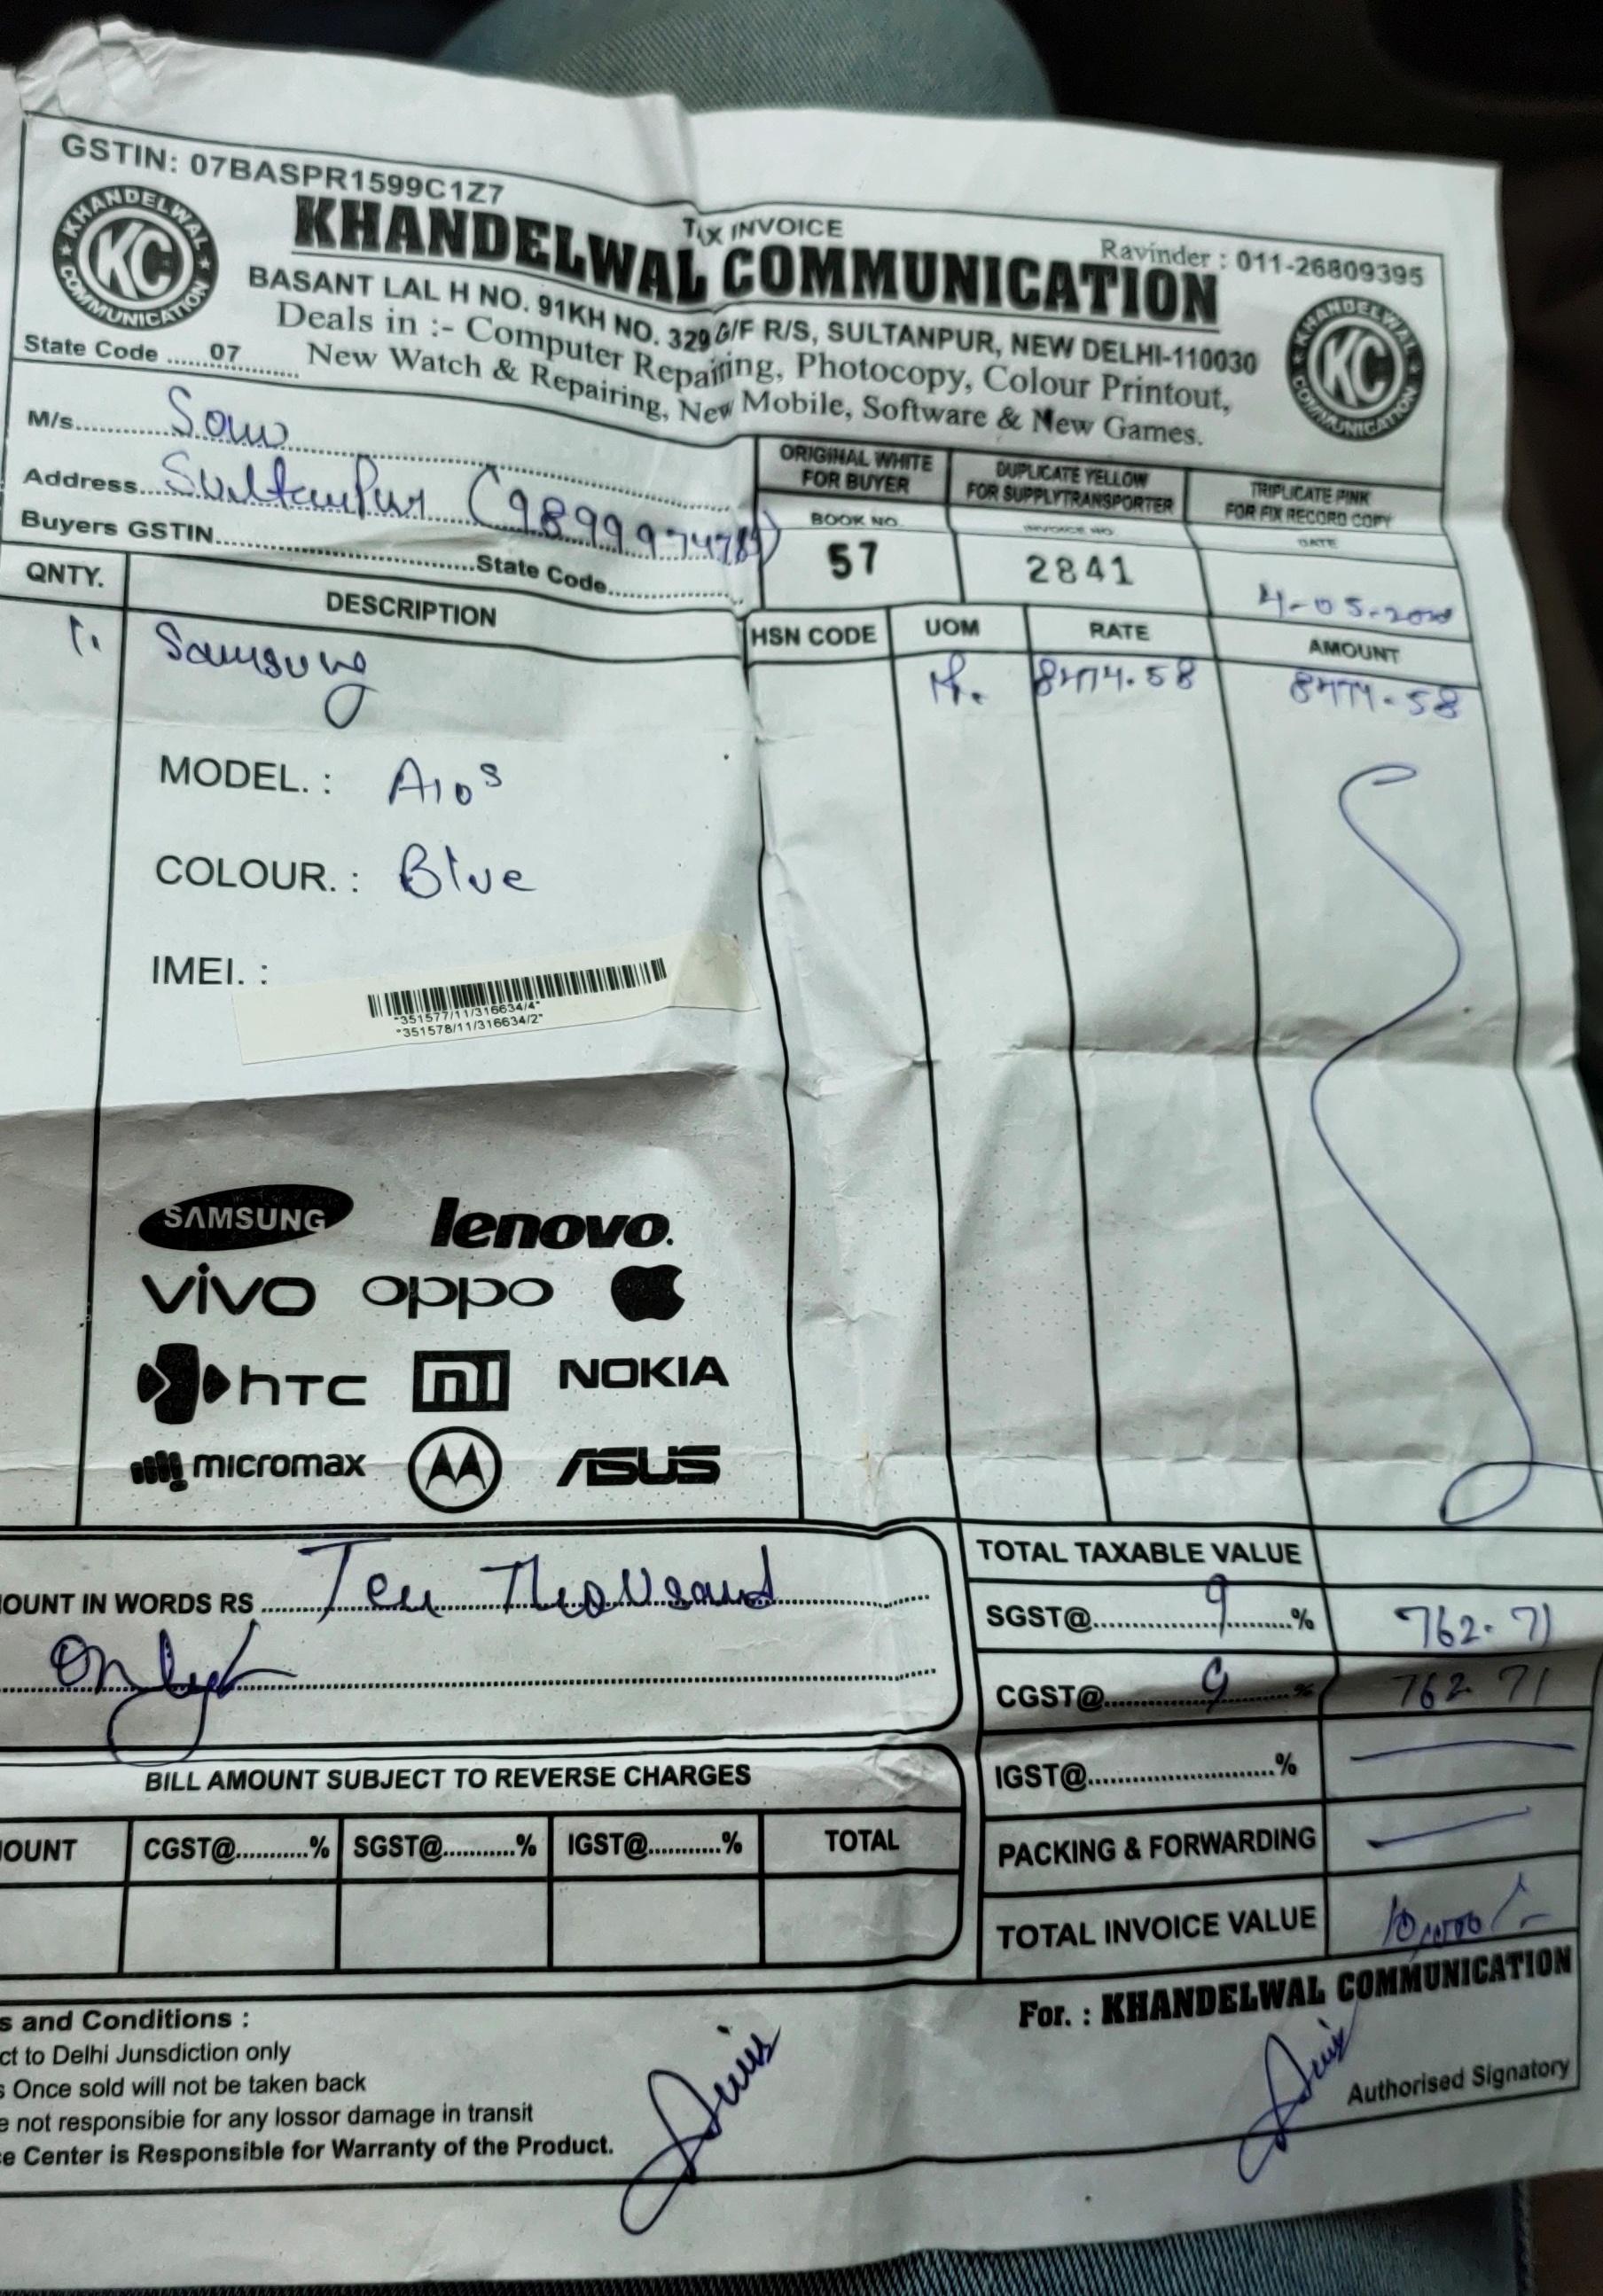 GSTIN: 07BASPR1599C1Z7
TAX INVOICE
Ravinder : 011-26809395
KHANDELWAL COMMUNICATION
KC
KHANDELWAL COMMUNICATION
BASANT LAL H NO. 91KH NO. 329 G/F R/S, SULTANPUR, NEW DELHI-110030
Deals in :- Computer Repairing, Photocopy, Colour Printout,
New Watch & Repairing, New Mobile, Software & New Games.
KC
KHANDELWAL COMMUNICATION
State Code ......07..............
M/s............Sonu
Address...Sultanpur (9899974789)
Buyers GSTIN..............................State Code...............
ORIGINAL WHITE FOR BUYER
DUPLICATE YELLOW FOR SUPPLYTRANSPORTER
TRIPLICATE PINK FOR FIX RECORD COPY
BOOK NO. 57
INVOICE NO 2841
DATE 4-05-2020
QNTY. DESCRIPTION HSN CODE UOM RATE AMOUNT
1. Samsung 8474.58 8474.58
MODEL. : A10s
COLOUR. : Blue
IMEI. :
"351577/11/316634/4"
"351578/11/316634/2"
SAMSUNG lenovo.
vivo oppo
hTC mi NOKIA
micromax ASUS
OUNT IN WORDS RS Ten Thousand
only
TOTAL TAXABLE VALUE
SGST@ 9 % 762.71
CGST@ 9 % 762.71
IGST@..........................%
PACKING & FORWARDING
TOTAL INVOICE VALUE 10,000/-
BILL AMOUNT SUBJECT TO REVERSE CHARGES
OUNT CGST@...........% SGST@...........% IGST@..........% TOTAL
For. : KHANDELWAL COMMUNICATION
Authorised Signatory
s and Conditions :
ct to Delhi Junsdiction only
s Once sold will not be taken back
e not responsibie for any lossor damage in transit
e Center is Responsible for Warranty of the Product.